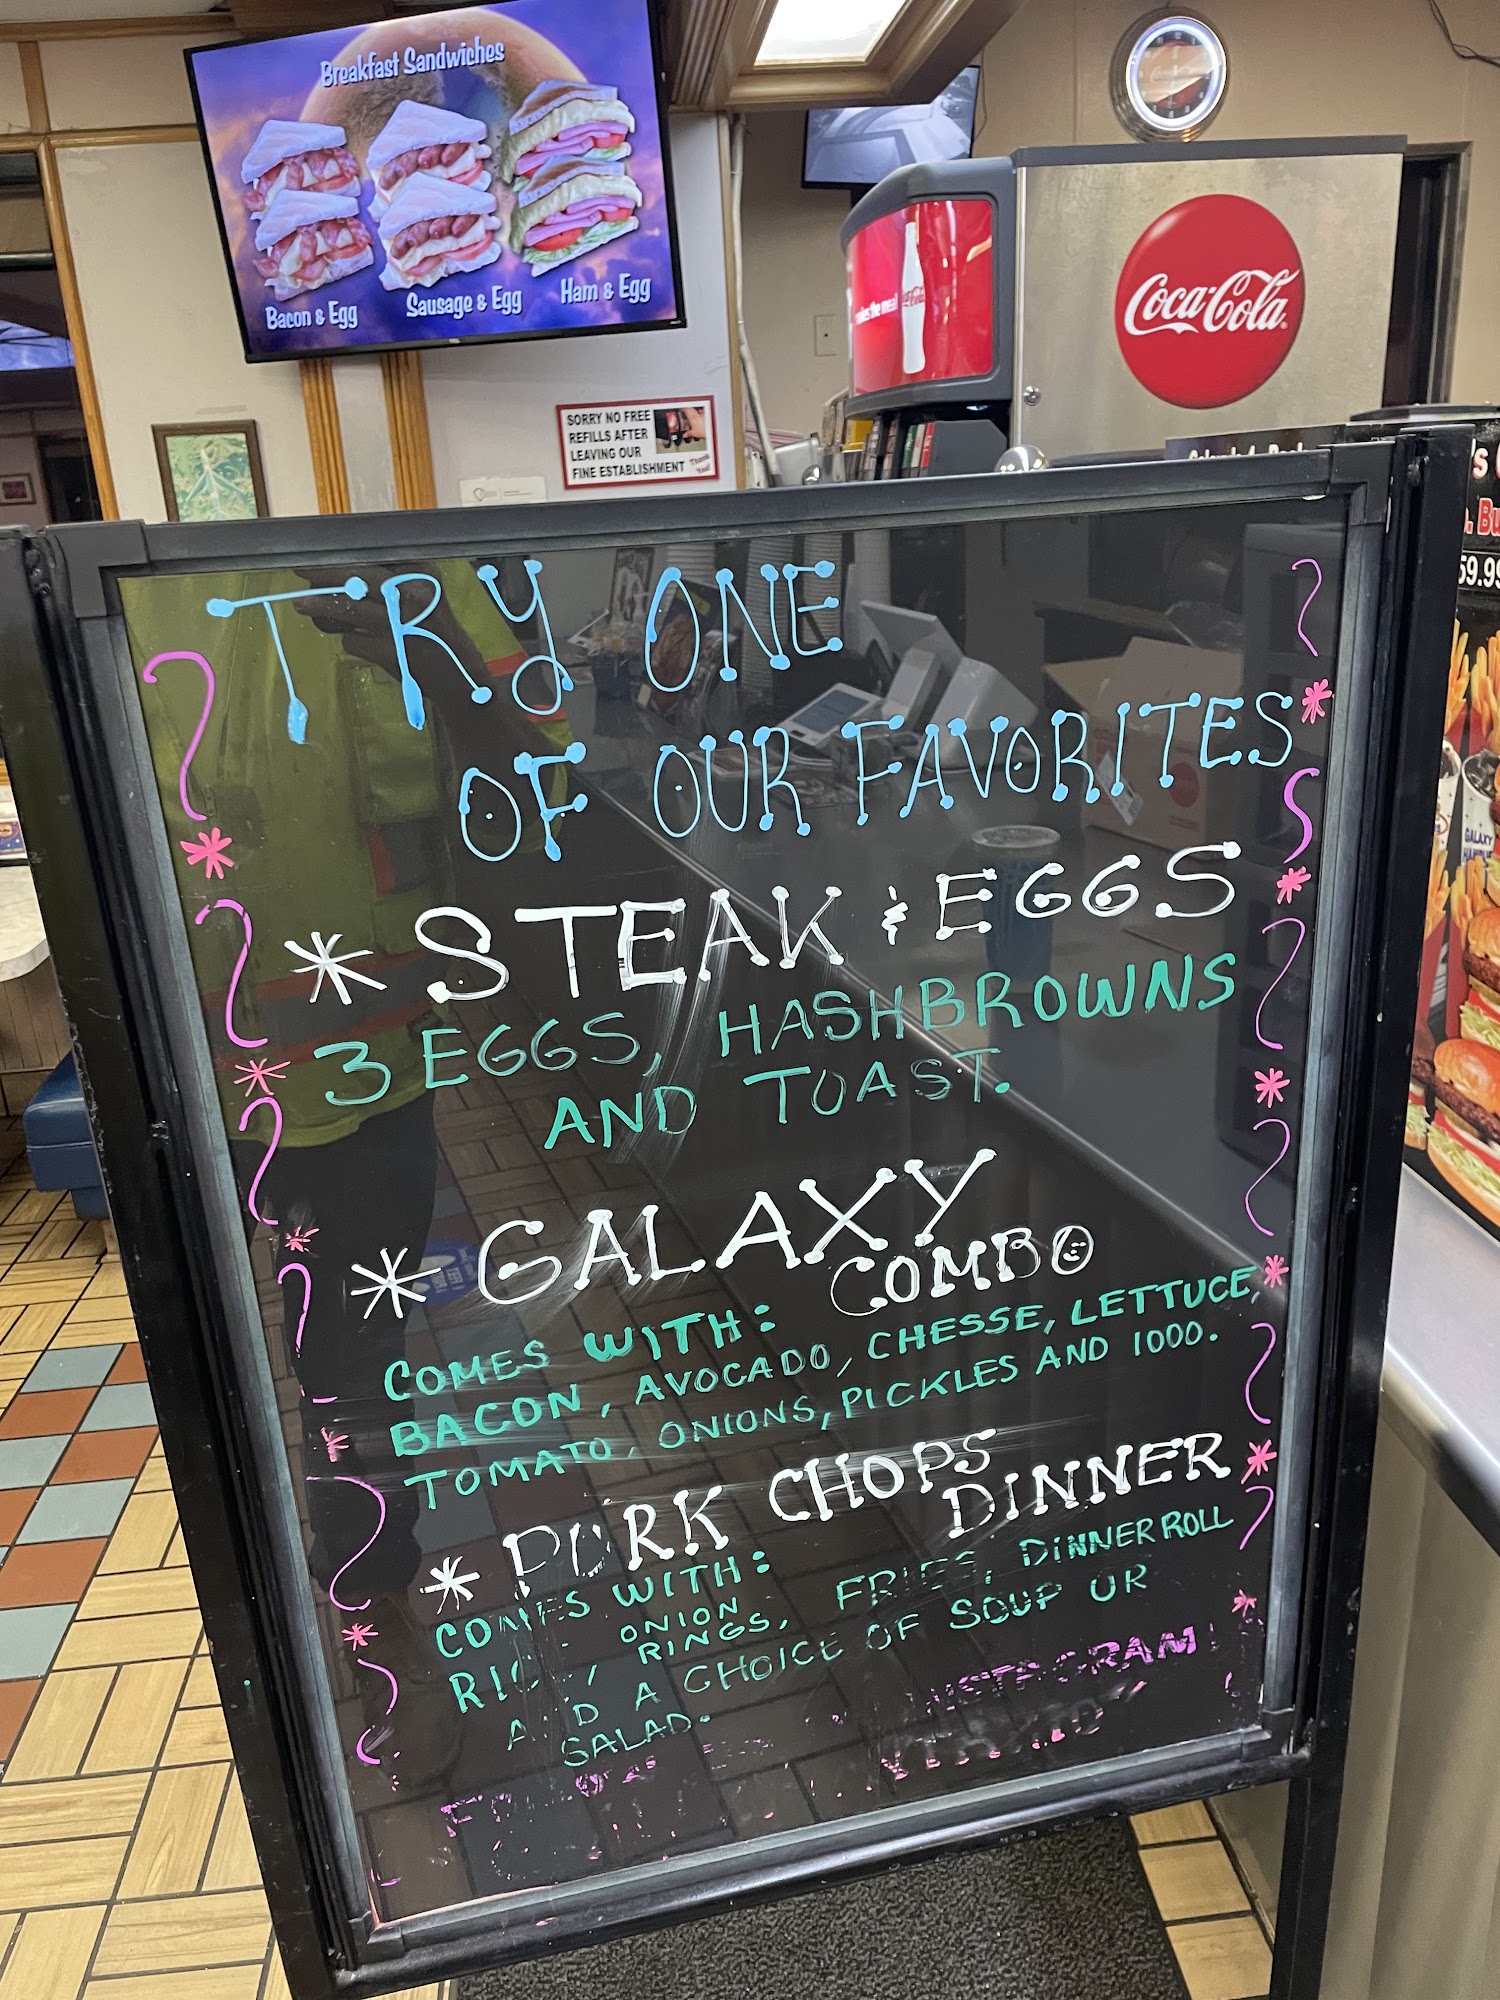 Breakfast Sandwiches
Bacon & Egg
Sausage & Egg
Ham & Egg
SORRY NO FREE
REFILLS AFTER
LEAVING OUR
FINE ESTABLISHMENT
Thank You!
Coca-Cola
TRY ONE
OF OUR FAVORITES
* STEAK & EGGS
3 EGGS, HASHBROWNS
AND TOAST.
* GALAXY
COMBO
COMES WITH:
BACON, AVOCADO, CHESSE, LETTUCE,
TOMATO, ONIONS, PICKLES AND 1000.
* PORK CHOPS
DINNER
COMES WITH:
RICE, ONION RINGS, FRIES, DINNER ROLL
AND A CHOICE OF SOUP OR
SALAD.
INSTAGRAM
59.99
GALAXY